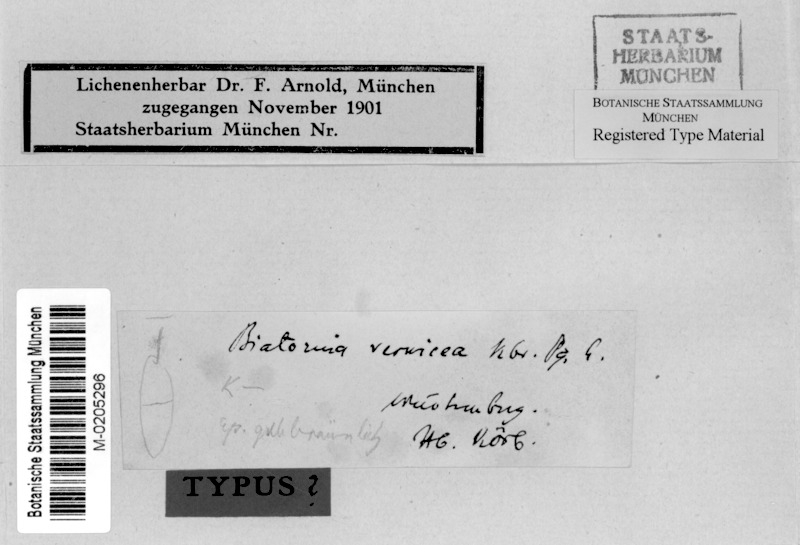 STAATS-
HERBARIUM
MÜNCHEN
Lichenenherbar Dr. F. Arnold, München
zugegangen November 1901
Staatsherbarium München Nr.
BOTANISCHE STAATSSAMMLUNG
MÜNCHEN
Registered Type Material
Botanische Staatssammlung München
M-0205296
Biatorina vernicea Kbr. Pg.
K—
ep. gelbbräunlich
Hb. Körb.
TYPUS ?